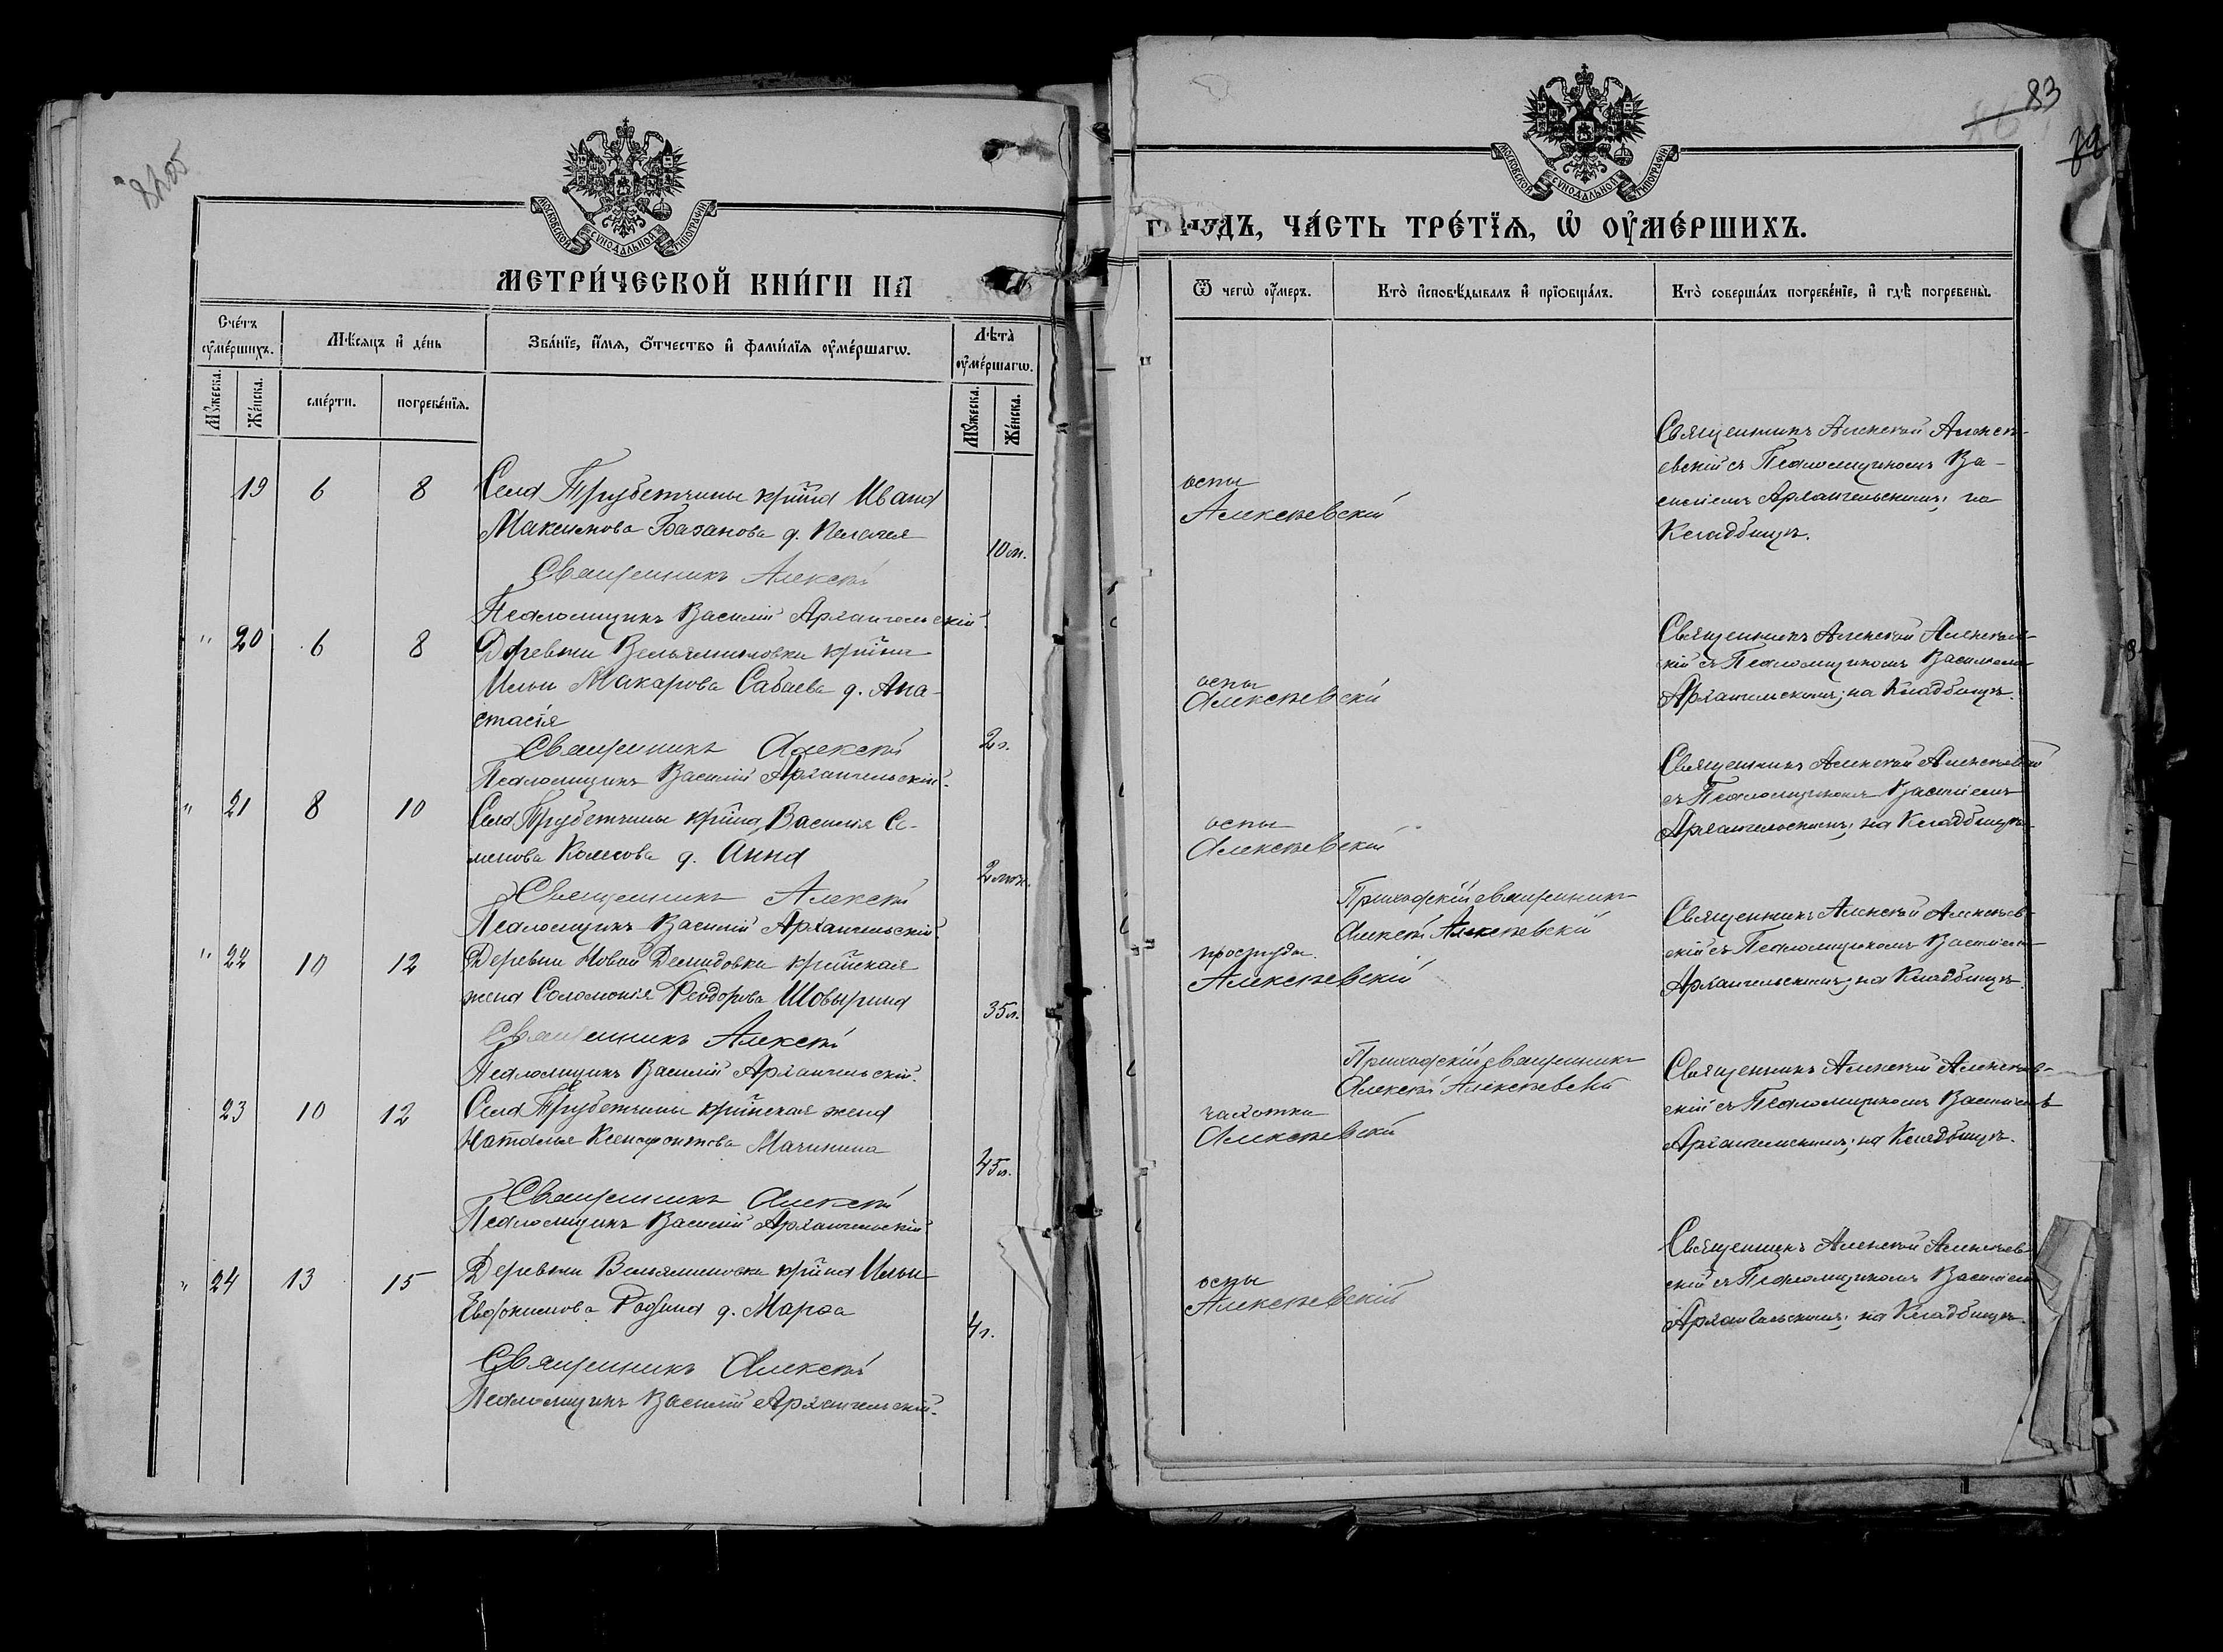 83
МОСКОВСКОЙ СѴНОДАЛЬНОЙ ТИПОГРАФІИ
МЕТРИ́ЧЕСКОЙ КНИ́ГИ НА
Сче́тъ ᲂумершихъ.
Мѣ́сяцъ и де́нь
Зва́нїе, и́мѧ, ѻ́тчество и фами́лїѧ ᲂуме́ршагѡ.
Лѣта̀ ᲂуме́ршагѡ.
Мꙋжеска.
Же́нска.
сме́рти.
погребе́нїѧ.
Мꙋжеска.
Же́нска.
19 6 8 Села Трубетчины кр҃ина Ивана
Максимова Базанова д. Пелагея
10 м.
Священникъ Алексѣй
Псаломщикъ Василій Архангельскій.
" 20 6 8 Деревни Вельяминовки кр҃ина
Ильи Макарова Сабаева д. Ана-
стасія
2 г.
Священникъ Алексѣй
Псаломщикъ Василій Архангельскій.
" 21 8 10 Села Трубетчины кр҃ина Василія Се-
менова Колесова д. Анна
Священникъ Алексѣй
Псаломщикъ Василій Архангельскій.
" 22 10 12 Деревни Новой Демидовки кр҃инская
жена Соломонія Ѳеодорова Шовырина
35 л.
Священникъ Алексѣй
Псаломщикъ Василій Архангельскій.
23 10 12 Села Трубетчины кр҃инская жена
Наталья Ксенофонтова Мачинина
45 л.
Священникъ Алексѣй
Псаломщикъ Василій Архангельскій.
" 24 13 15 Деревни Вельяминовки кр҃ина Ильи
Евфимова д. Марѳа
4 г.
Священникъ Алексѣй
Псаломщикъ Василій Архангельскій.
МОСКОВСКОЙ СѴНОДАЛЬНОЙ ТИПОГРАФІИ
ГО́ДЪ, ЧА́СТЬ ТРЕ́ТЇѦ, Ѡ ОУМЕ́РШИХЪ.
Ѿ чегѡ̀ ᲂу́меръ.
Кто̀ и҆сповѣ́дывалъ и҆ прїѡбща́лъ.
Кто̀ соверша́лъ погребе́нїе, и҆ гдѣ̀ погребены̀.
оспы
Алексѣевскій
Священникъ Алексѣй Алексѣ-
евскій съ Псаломщикомъ Ва-
силіемъ Архангельскимъ; на
Кладбищѣ.
оспы
Алексѣевскій
Священникъ Алексѣй Алексѣев-
скій съ Псаломщикомъ Василіемъ
Архангельскимъ; на Кладбищѣ.
оспы
Алексѣевскій
Священникъ Алексѣй Алексѣевскій
съ Псаломщикомъ Василіемъ
Архангельскимъ; на Кладбищѣ.
простуды
Алексѣевскій
Приходскій священникъ
Алексѣй Алексѣевскій
Священникъ Алексѣй Алексѣев-
скій съ Псаломщикомъ Василіемъ
Архангельскимъ; на Кладбищѣ.
чахотки
Алексѣевскій
Приходскій священникъ
Алексѣй Алексѣевскій
Священникъ Алексѣй Алексѣев-
скій съ Псаломщикомъ Василіемъ
Архангельскимъ; на Кладбищѣ.
оспы
Алексѣевскій
Священникъ Алексѣй Алексѣев-
скій съ Псаломщикомъ Василіемъ
Архангельскимъ; на Кладбищѣ.